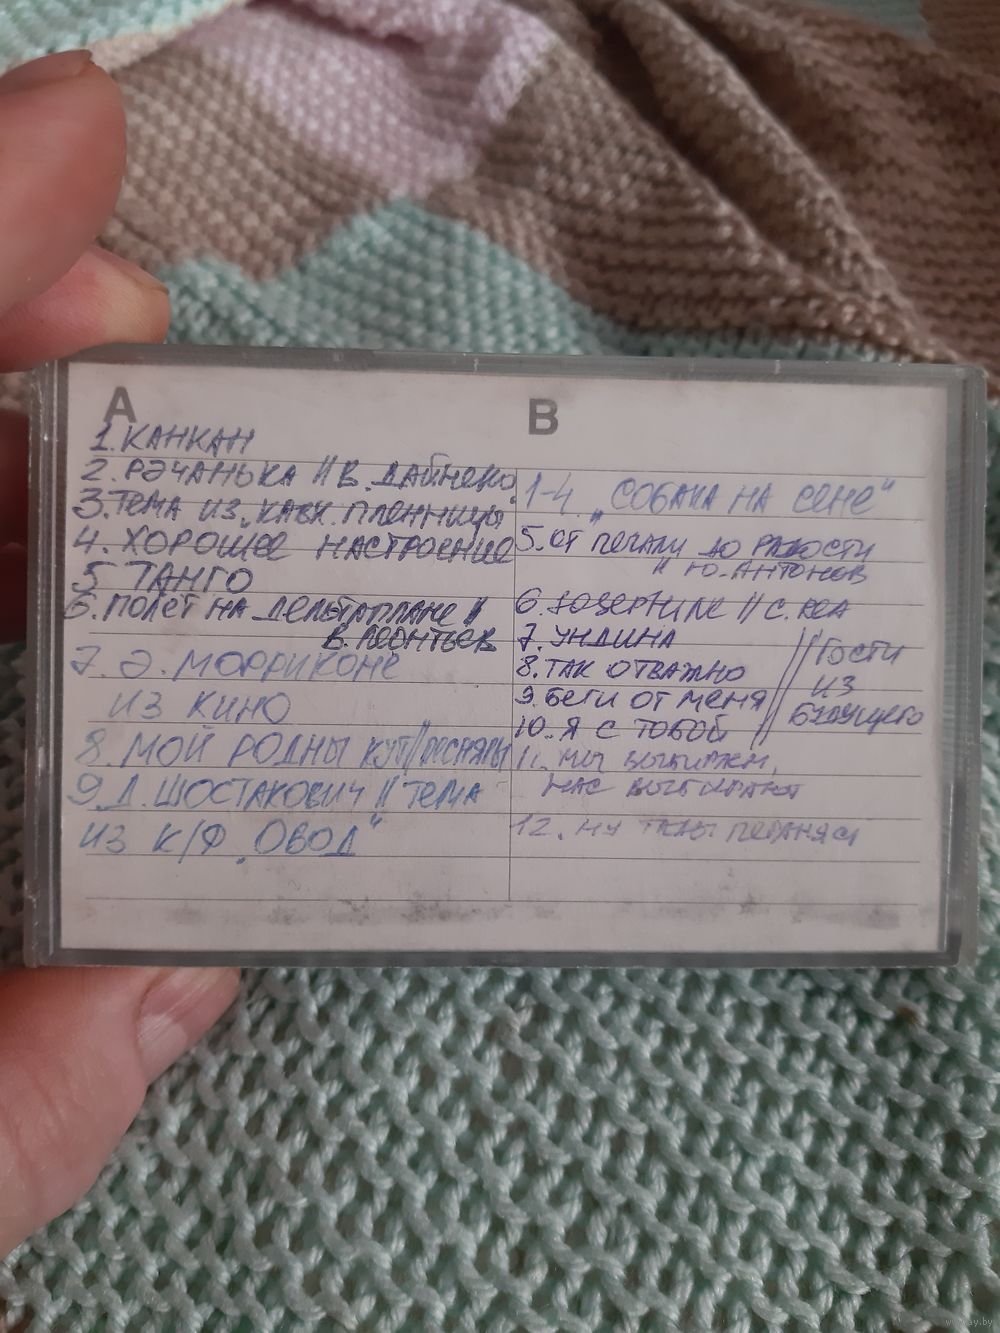 A
1. КАНКАН
2. РЭЧАНЬКА // В. ДАЙНЕКО
3. ТЕМА ИЗ „КАВК. ПЛЕННИЦЫ
4. ХОРОШЕЕ НАСТРОЕНИЕ
5 ТАНГО
6. ПОЛЁТ НА ДЕЛЬТАПЛАНЕ //
В. ЛЕОНТЬЕВ
7. Э. МОРРИКОНЕ
ИЗ КИНО
8. МОЙ РОДНЫ КУТ // ПЕСНЯРЫ
9. Д. ШОСТАКОВИЧ // ТЕМА
ИЗ К/Ф „ОВОД"
B
1-4. „СОБАКА НА СЕНЕ"
5. ОТ ПЕЧАЛИ ДО РАДОСТИ
// Ю. АНТОНОВ
6. // С. REA
7. УНДИНА
8. ТАК ОТВАЖНО
9. БЕГИ ОТ МЕНЯ
10. Я С ТОБОЙ
// ГОСТИ
ИЗ
БУДУЩЕГО
11. МЫ ВЫБИРАЕМ,
НАС ВЫБИРАЮТ
12.